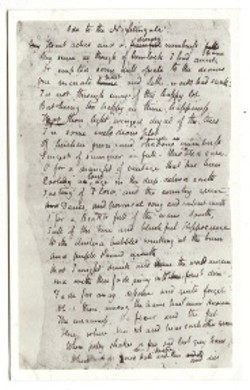 Ode to the Nightingale
My Heart aches and a drowsy numbness
My sense as though of hemlock I had drunk
Or emptied some dull opiate to the drains
One minute and Lethe wards had sunk
'Tis not through envy of thy happy lot
But being too happy in thine happiness
That thou light winged dryad of the trees
In some melodious plot
Of beechen green and shadows numberless
Singest of summer in
O for a draught of vintage that has been
Cooling an age in the deep delved earth
Tasting of Flora and the country green
And Dance and provencal song and sunburnt mirth
O for a Beaker full of the warm South
Full of the true and blushful Hippocrene
With cluster'd bubbles winking at the brim
And purple stained mouth
That I might drink and leave the world unseen
And with thee fade away into the forest dim
Fade far away, dissolve and quite forget
What thou among the leaves hast never known
The weariness the fever and the fret
Here where men sit and hear each other groan
Where palsy shakes a few sad last grey hairs
Where youth grows pale and thin and dies